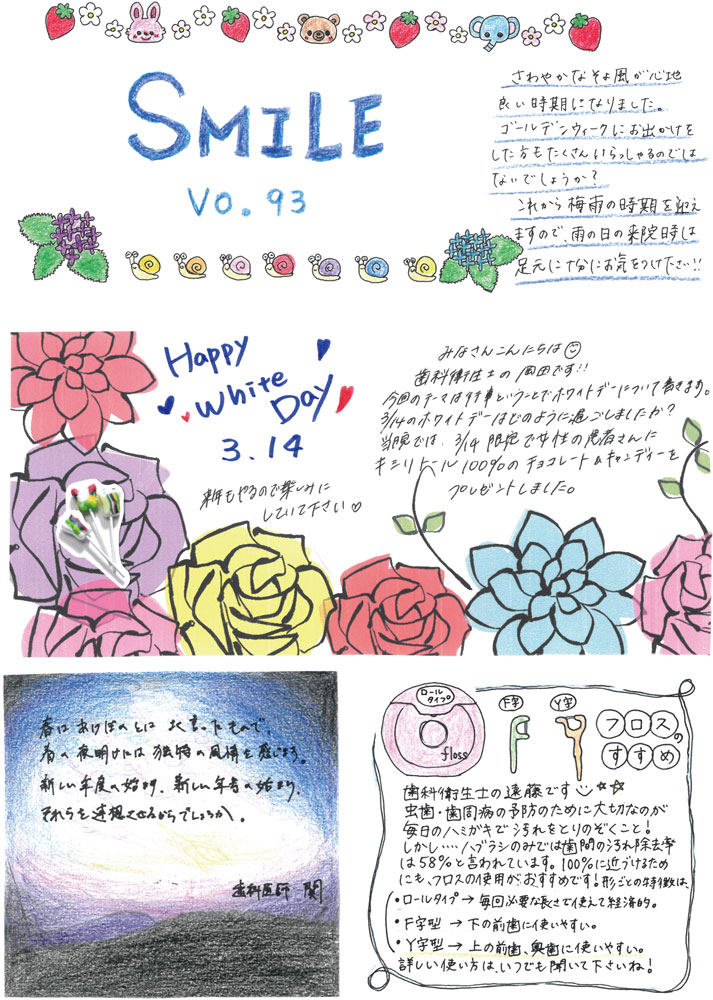 SMILE
VO. 93
さわやかなそよ風が心地
良い時期になりました。
ゴールデンウィークにお出かけを
した方もたくさんいらっしゃるのでは
ないでしょうか？
これから梅雨の時期を迎え
ますので、雨の日の来院時は
足元に十分にお気をつけ下さい!!
Happy
White
Day
3.14
来年もやるので楽しみに
していて下さい
みなさんこんにちは
歯科衛生士の岡田です!!
今回のテーマは行事ということでホワイトデーについて書きます。
3/14のホワイトデーはどのように過ごしましたか？
当院では、3/14限定で女性の患者さんに
キシリトール100%のチョコレート&キャンディーを
プレゼントしました。
春はあけぼのとは よく言ったもので、
春の夜明けには独特の風情を感じます。
新しい年度の始まり、新しい年音の始まり、
それらを連想させるからでしょうか。
歯科医師 関
ロール
タイプ
floss
F字
Y字
フロスの
すすめ
歯科衛生士の遠藤です
虫歯・歯周病の予防のために大切なのが
毎日のハミガキで汚れをとりのぞくこと！
しかし…ハブラシのみでは歯間の汚れ除去率
は58%と言われています。100%に近づけるため
にも、フロスの使用がおすすめです！形ごとの特徴は、
・ロールタイプ→毎回必要な長さで使えて経済的。
・F字型 → 下の前歯に使いやすい。
・Y字型 → 上の前歯、奥歯に使いやすい。
詳しい使い方は、いつでも聞いて下さいね！